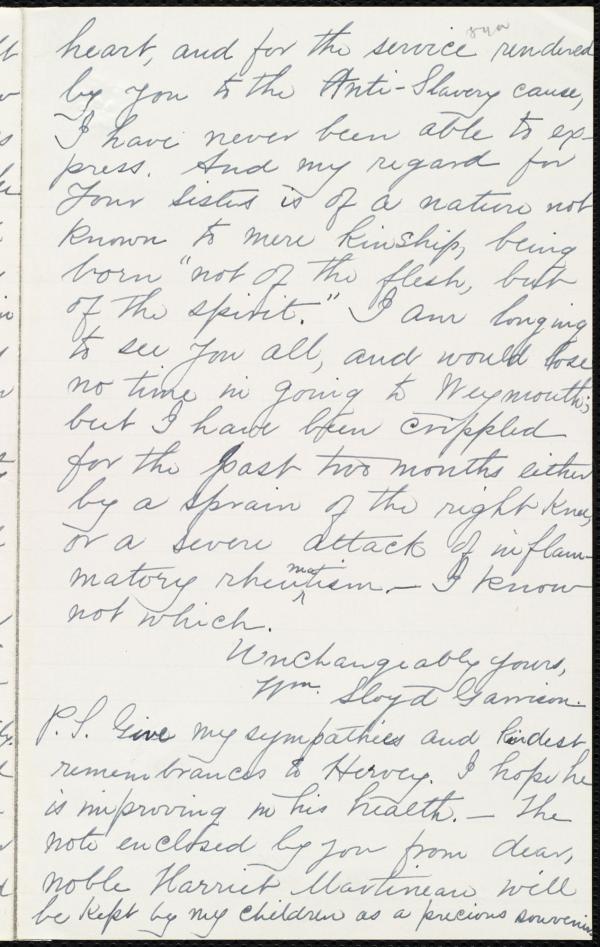 heart, and for the service rendered
by you to the Anti-Slavery cause,
I have never been able to ex-
press. And my regard for
Your sisters is of a nature not
known to mere kinship, being
born "not of the flesh, but
of the spirit." I am longing
to see you all, and would lose
no time in going to Weymouth;
but I have been crippled
for the past two months either
by a sprain of the right knee,
or a severe attack of inflam-
matory rheumatism — I know
not which.
Unchangeably yours,
Wm. Lloyd Garrison.
P.S. Give my sympathies and kindest
remembrances to Hervey. I hope he
is improving in his health. — The
note enclosed by you from dear,
noble Harriet Martineau will
be kept by my children as a precious souvenir.